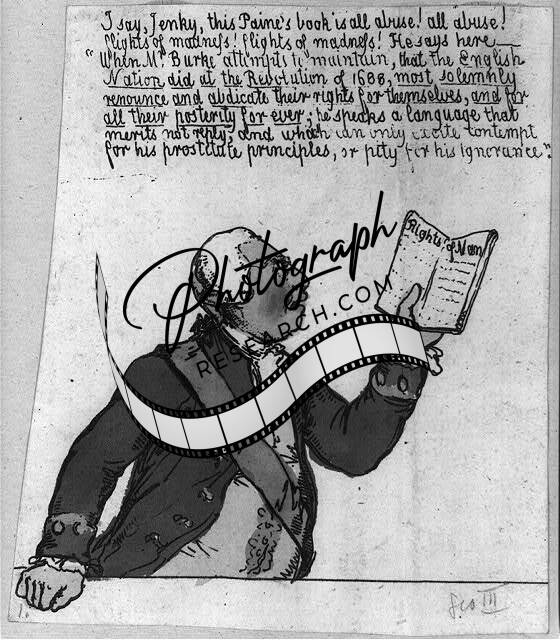 I say, Jenky, this Paine's book is all abuse! all abuse!
flights of madness! flights of madness! He says here—
"When Mr. Burke attempts to maintain, that the English
Nation did at the Revolution of 1688, most solemnly
renounce and abdicate their rights for themselves, and for
all their posterity for ever; he speaks a language that
merits not reply, and which can only excite contempt
for his prostitute principles, or pity for his ignorance".
Rights of Man
Photograph
RESEARCH.COM
Geo III
1.